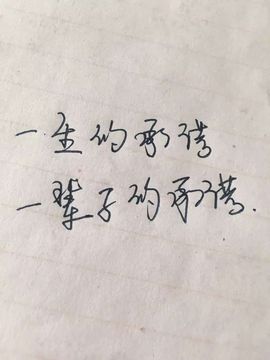 一生的承诺
一辈子的承诺.